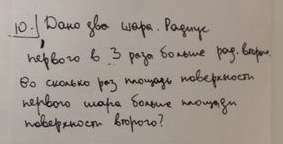 10. Дано два шара. Радиус
первого в 3 раза больше рад. второг.
Во сколько раз площадь поверхности
первого шара больше площади
поверхности второго?